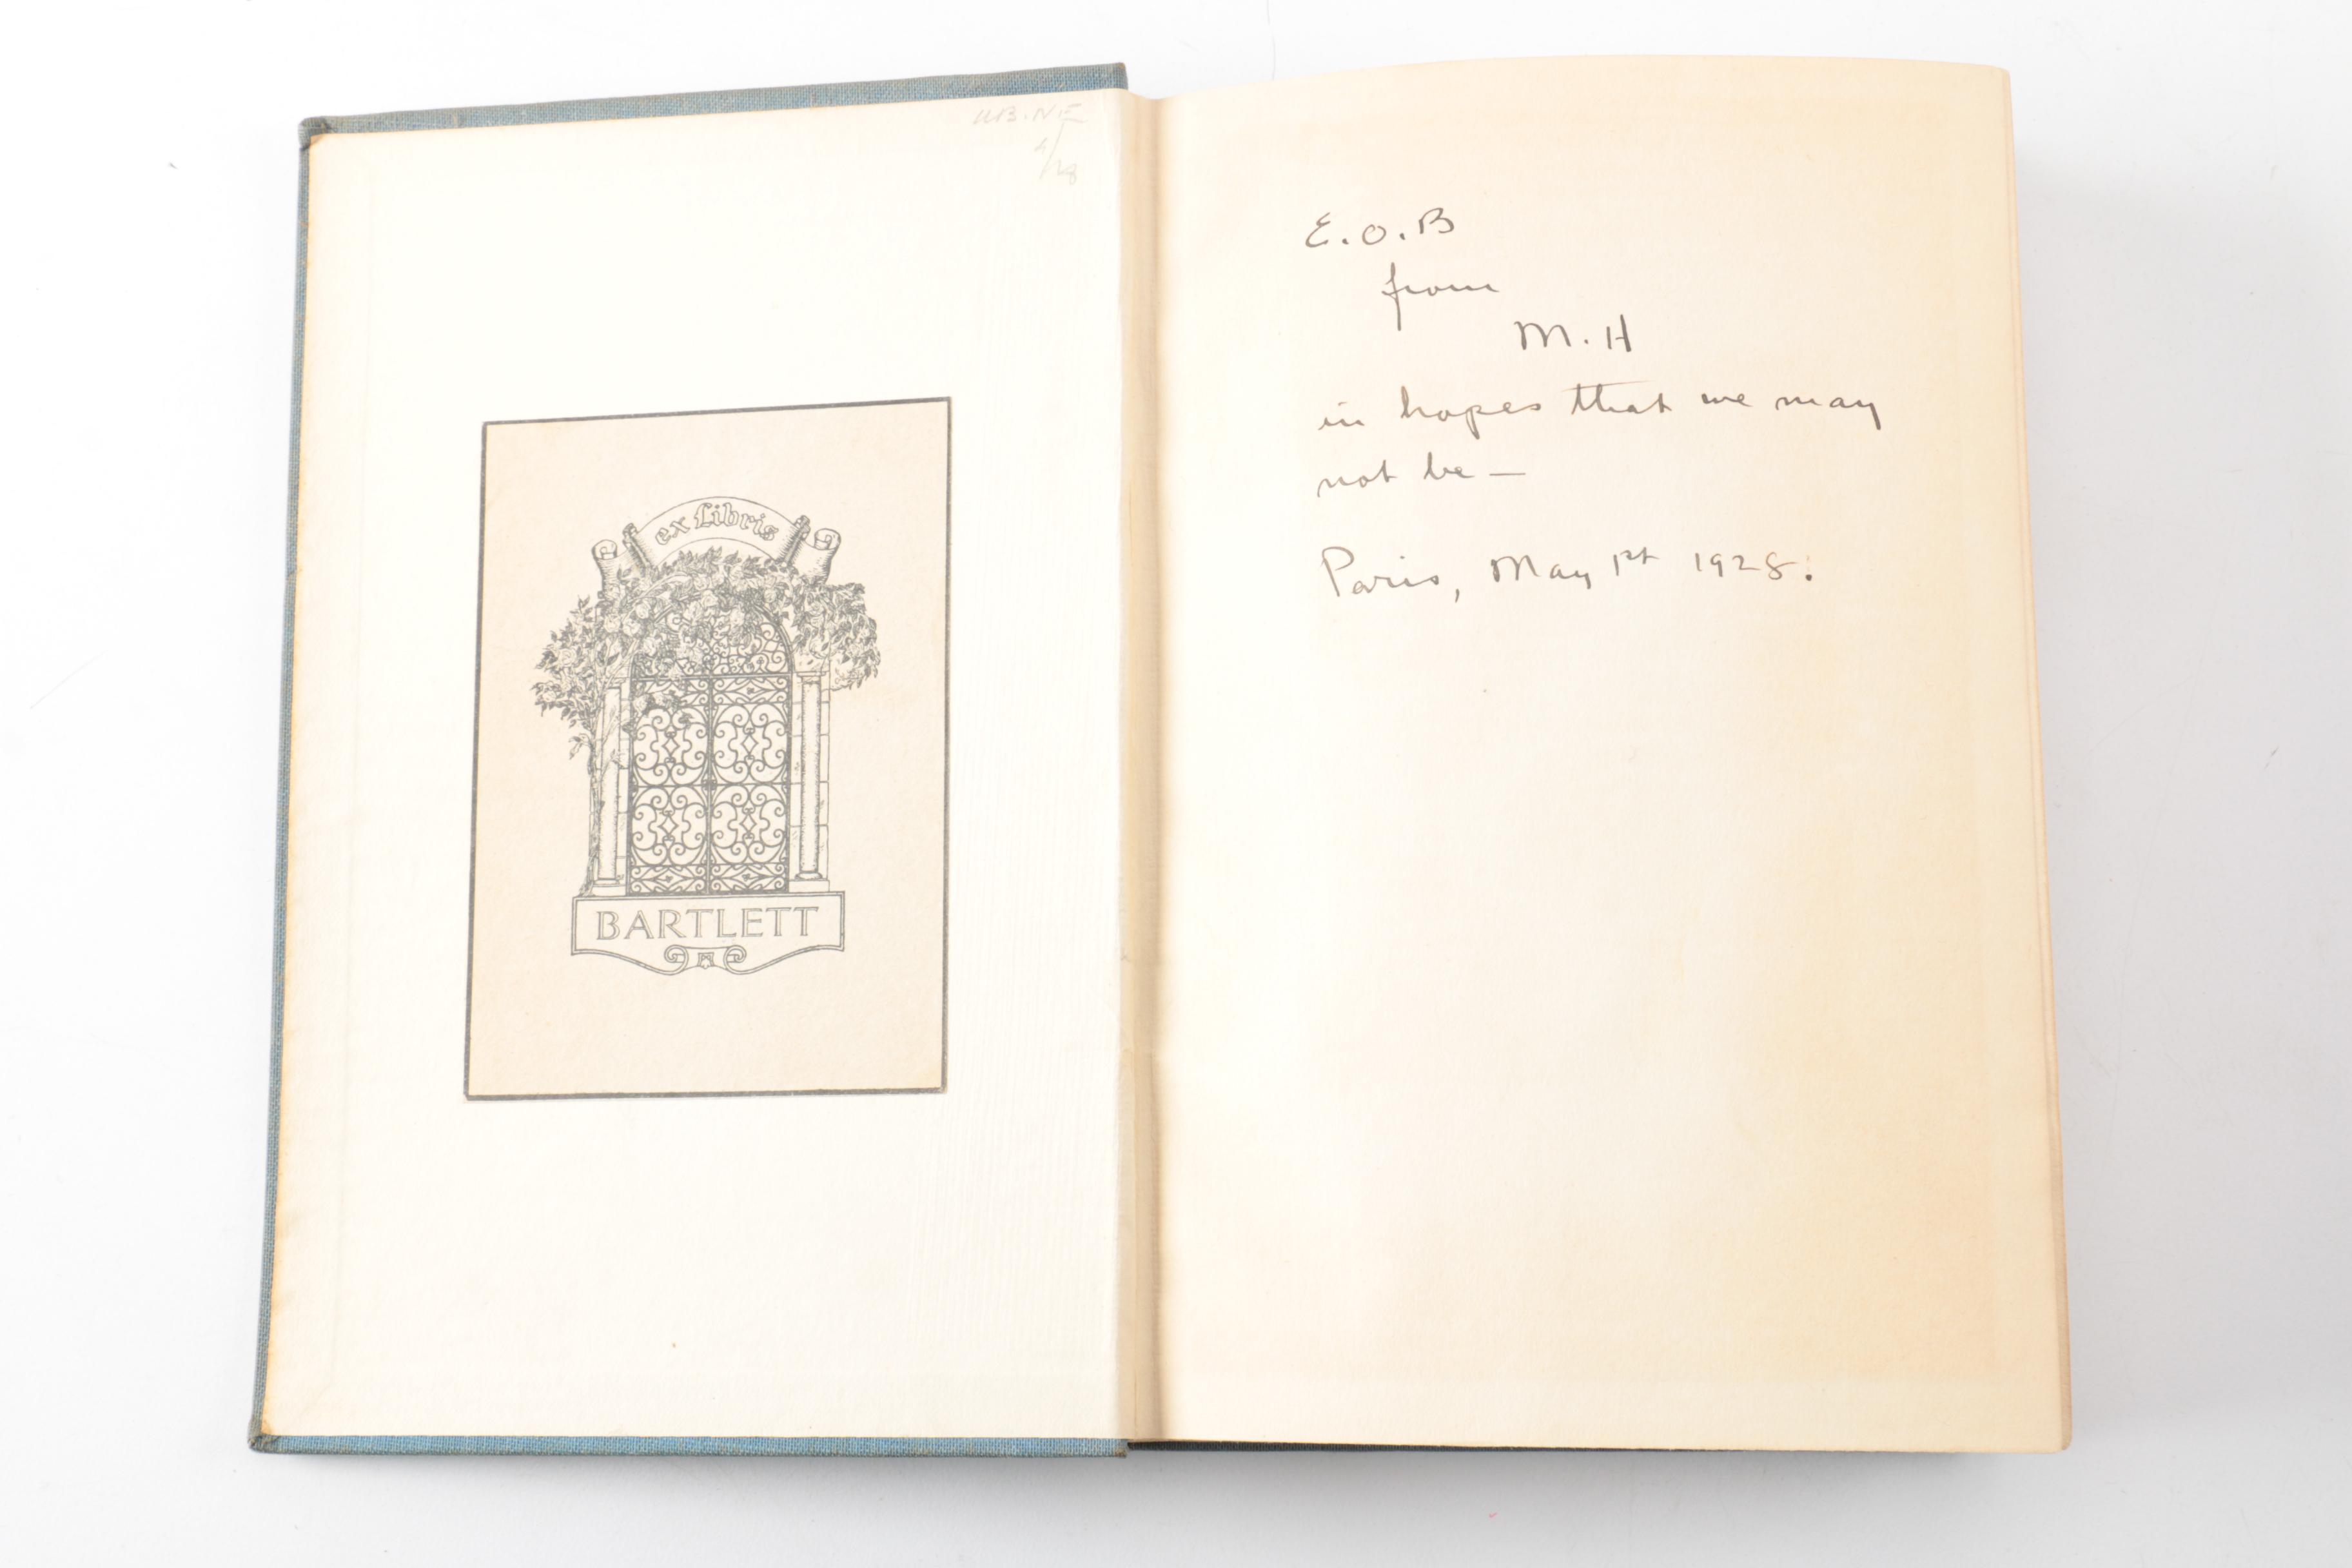 ex Libris
BARTLETT
E.O.B
from
M.H
in hopes that we may
not be —
Paris, May 1st 1928.